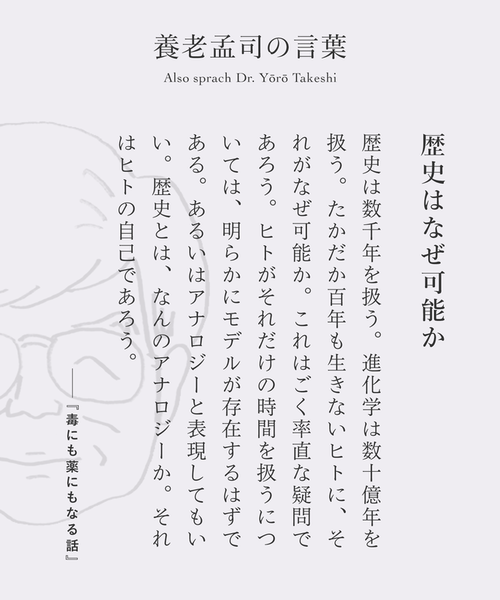 養老孟司の言葉
Also sprach Dr. Yōrō Takeshi
歴史はなぜ可能か
歴史は数千年を扱う。進化学は数十億年を
扱う。たかだか百年も生きないヒトに、そ
れがなぜ可能か。これはごく率直な疑問で
あろう。ヒトがそれだけの時間を扱うにつ
いては、明らかにモデルが存在するはずで
ある。あるいはアナロジーと表現してもい
い。歴史とは、なんのアナロジーか。それ
はヒトの自己であろう。
──『毒にも薬にもなる話』